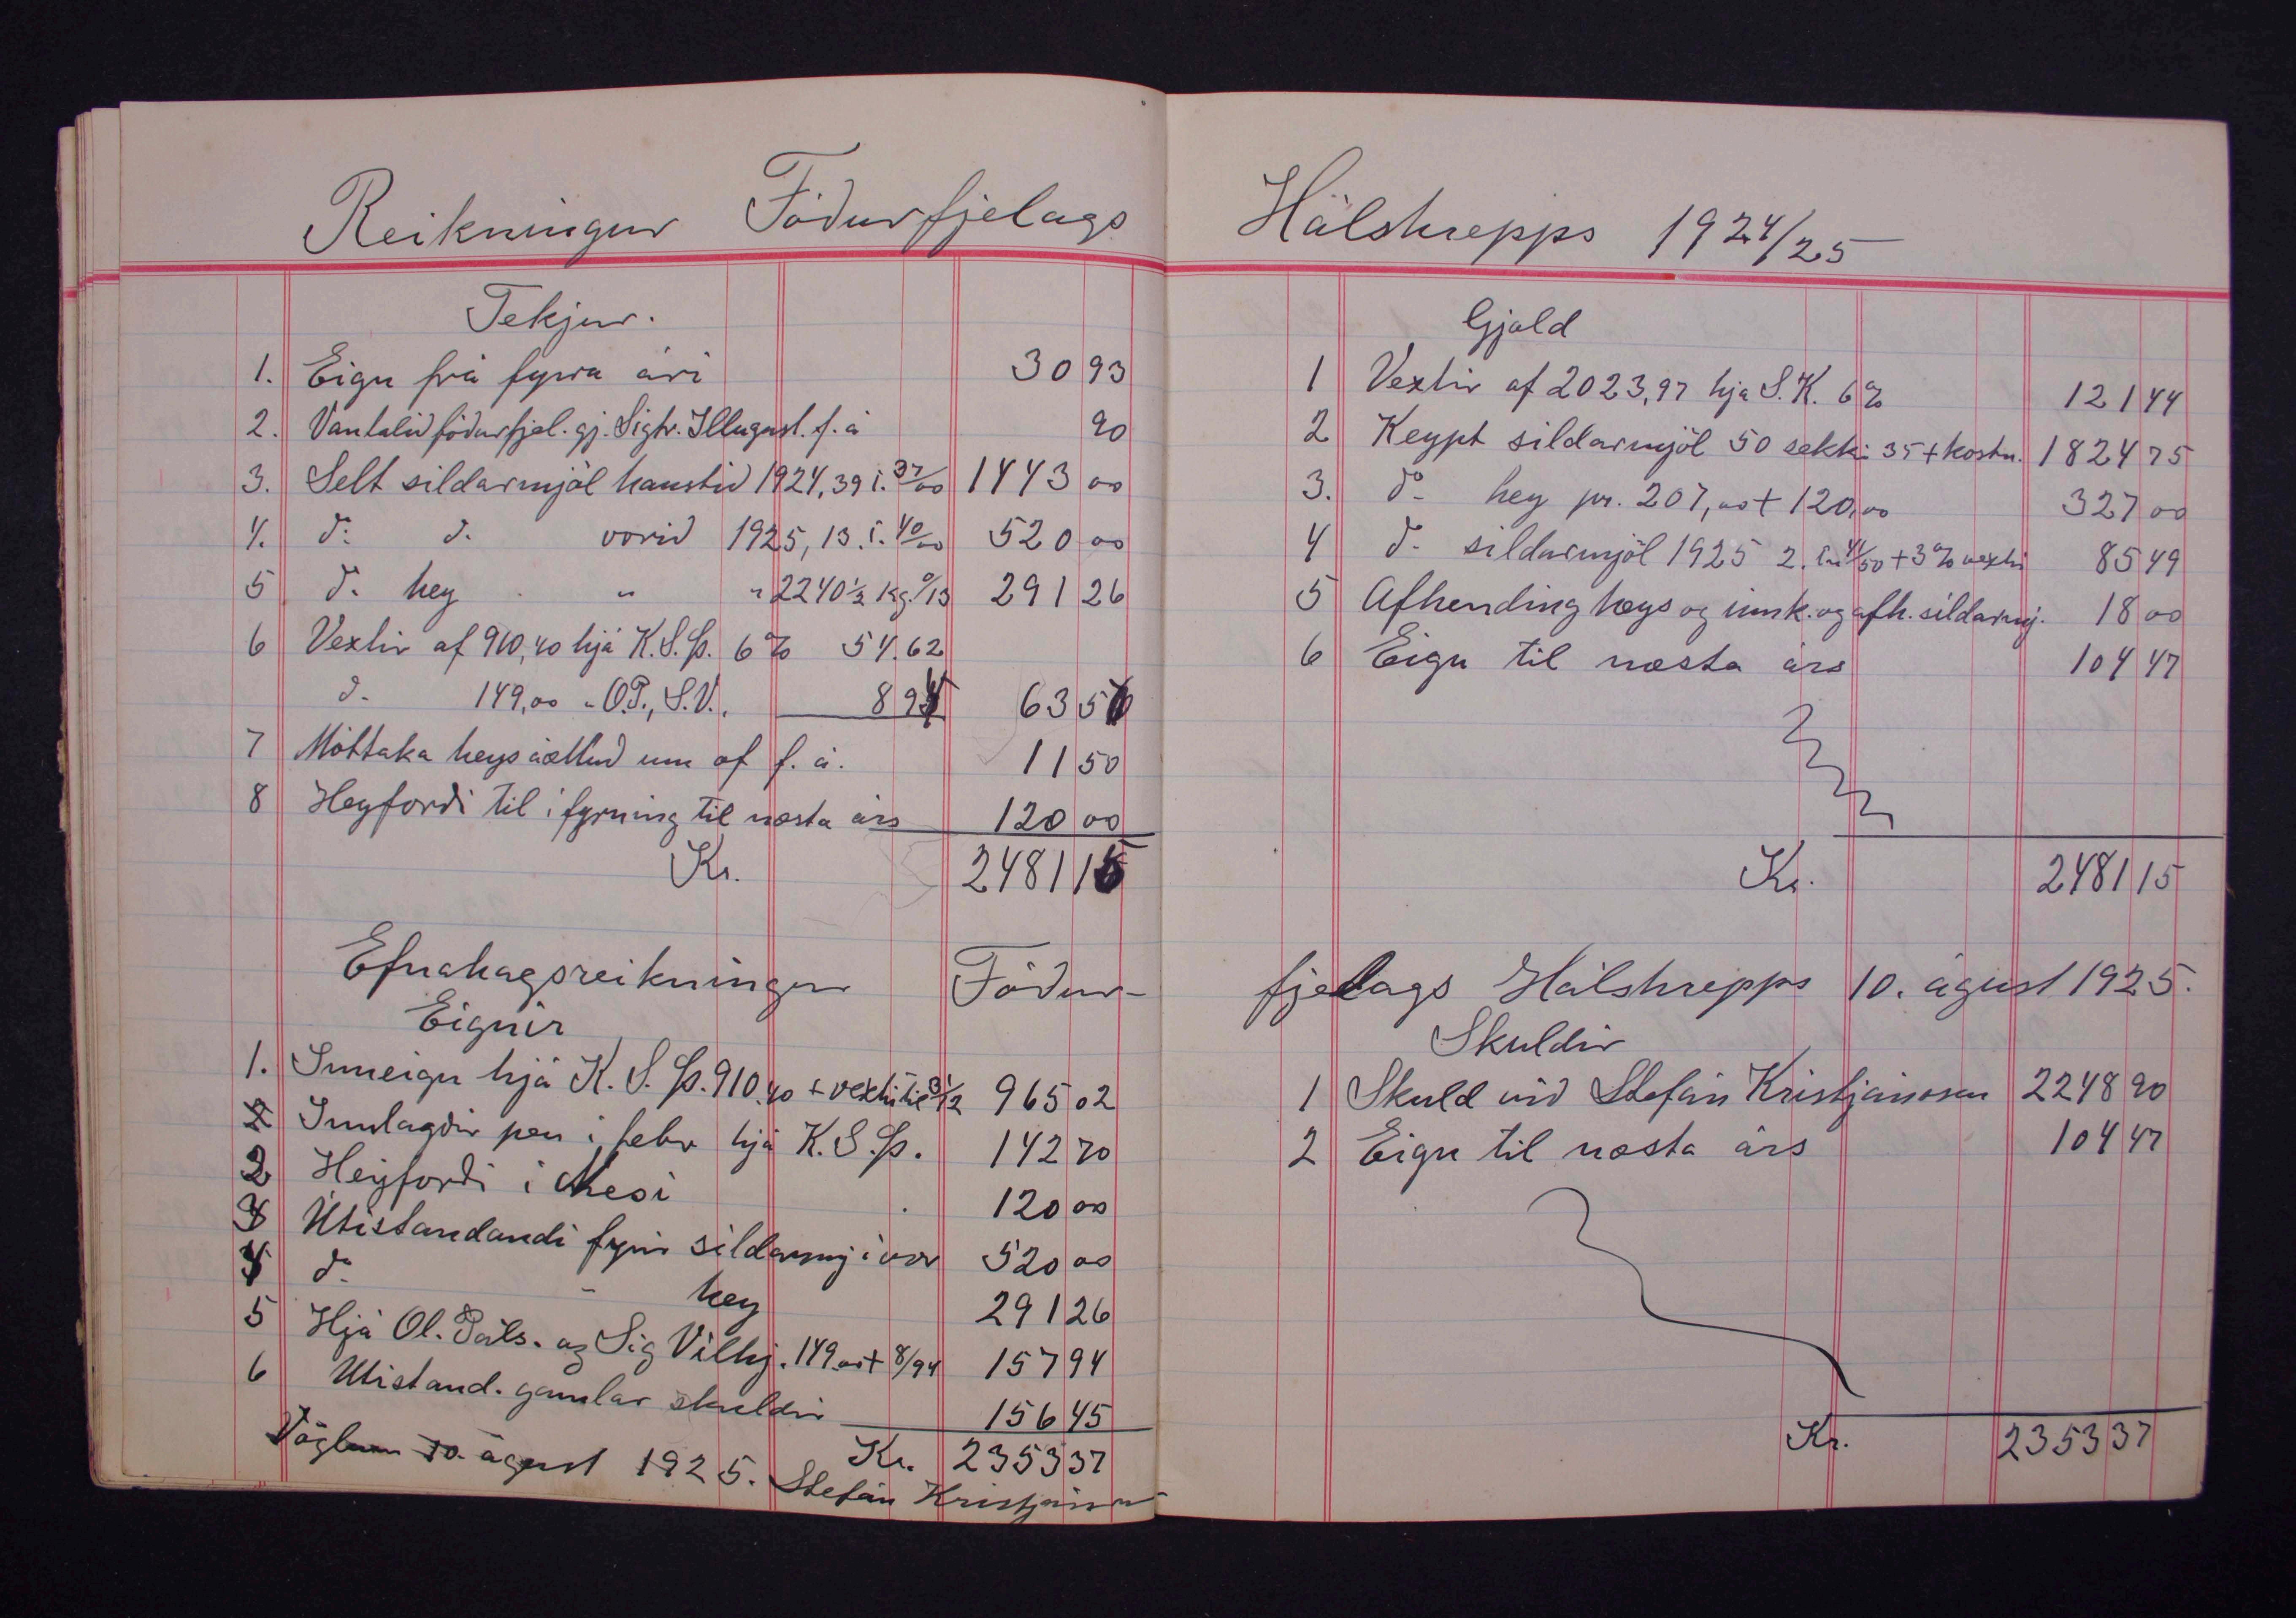 Reikningur Fóðurfjelags Hálshrepps 1924/25
Tekjur.
1. Eign frá fyrra ári 30 93
2. Vantalið fóðurfjel. gj. Sigtr. Illugast. f. á 90
3. Selt síldarmjöl haustið 1924, 39 í. 37/00 1443 00
4. do do vorið 1925, 13. í. 40/00 520 00
5 do hey " " 2240 1/2 kg. 0/13 291 26
6 Vextir af 910,40 hjá K.S.Þ. 6% 54.62
do 149,00 " O.P., S.V., 8 94 63 56
7 Móttaka heys áætluð um of f. á. 11 50
8 Heyforði til í fyrning til næsta árs 120 00
Kr. 2481 15
Efnahagsreikningur Fóður-
Eignir
1. Inneign hjá K.S.Þ. 910.40 + vextir til 31/12 965 02
Innlagðir pen í febr hjá K.S.Þ. 142 70
2 Heyforði í Nesi 120 00
3 Útistandandi fyrir síldarmj í vor 520 00
4 do " hey 291 26
5 Hjá Ól. Páls. og Sig Vilhj. 149.00 + 8/94 157 94
6 Utistand. gamlar skuldir 156 45
Kr. 2353 37
Vöglum 10. ágúst 1925. Stefán Kristjánsson
Gjald
1 Vextir af 2023,97 hjá S.K. 6% 121 44
2 Keypt síldarmjöl 50 sekki 35 + kostn. 1824 75
3. do hey pr. 207,00 + 120,00 327 00
4 do síldarmjöl 1925 2. í 41/50 + 3% vexti 85 49
5 Afhending heys og innk. og afh. síldarmj. 18 00
6 Eign til næsta árs 104 47
Kr. 2481 15
fjelags Hálshrepps 10. ágúst 1925.
Skuldir
1 Skuld við Stefán Kristjánsson 2248 90
2 Eign til næsta árs 104 47
Kr. 2353 37